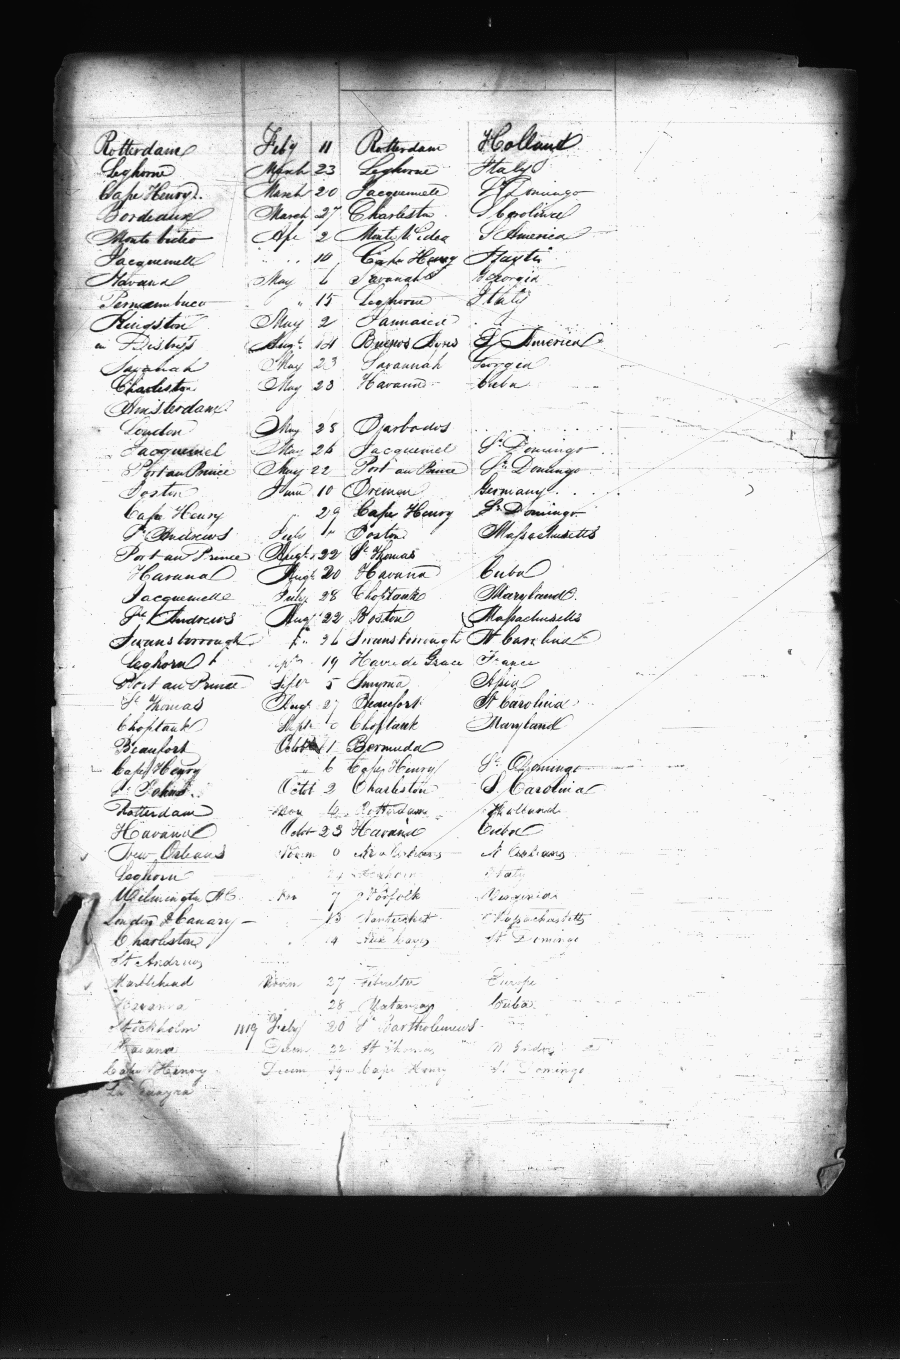 Rotterdam Feby 11 Rotterdam Holland
Leghorne March 23 Leghorne Italy
Cape Henry March 20 Jacquemelle St Domingo
Bordeaux March 27 Charleston S Carolina
Monte Video Apr 2 Monte Videa S America
Jacquemelle 10 Cape Henry Hayti
Havana May 6 Savanah Georgia
Pernambuco " 15 Leghorne Italy
Kingston May 2 Jamaica
Augt 14 Buenos Ayres S America
Savanah May 23 Savannah Georgia
Charleston May 23 Havana Cuba
Amsterdam
London May 25 Barbados
Jacquemel May 26 Jacquemel St Domingo
Port au Prince May 22 Port au Prince St Domingo
Boston June 10 Bremen Germany
Cape Henry " 29 Cape Henry St Domingo
St Andrews July Boston Massachusetts
Port au Prince Augt 22 St Thomas
Havana Augt 20 Havana Cuba
Jacquemelle July 28 Choptank Maryland
St Andrews Augt 22 Boston Massachusetts
Swansborrough Swansborrough N Carolina
Leghorn 19 Havre de Grace France
Port au Prince Septr 5 Smyrna Asia
St Thomas Augt 27 Beaufort N Carolina
Choptank Septr Choptank Maryland
Beaufort Octobr 1 Bermuda
Cape Henry " 6 Cape Henry St Domingo
St Johns Octobr 2 Charleston S Carolina
Rotterdam Nov 4 Rotterdam Holland
Havana Octobr 23 Havana Cuba
New Orleans Novem N Orleans
Leghorn 24 Leghorn Italy
Wilmington N C Nov 7 Norfolk Virginia
London & Canary 13 Nantucket Massachusetts
Charleston 4 Aux Cayes St Domingo
St Andrews
Marblehead Novem 27 Gibralter Europe
Havanna 28 Matanzas Cuba
Stockholm 1819 Feby 20 St Bartholemews
Havana Decem 22 St Thomas
Cape Henry Decem 29 Cape Henry St Domingo
La Guayra